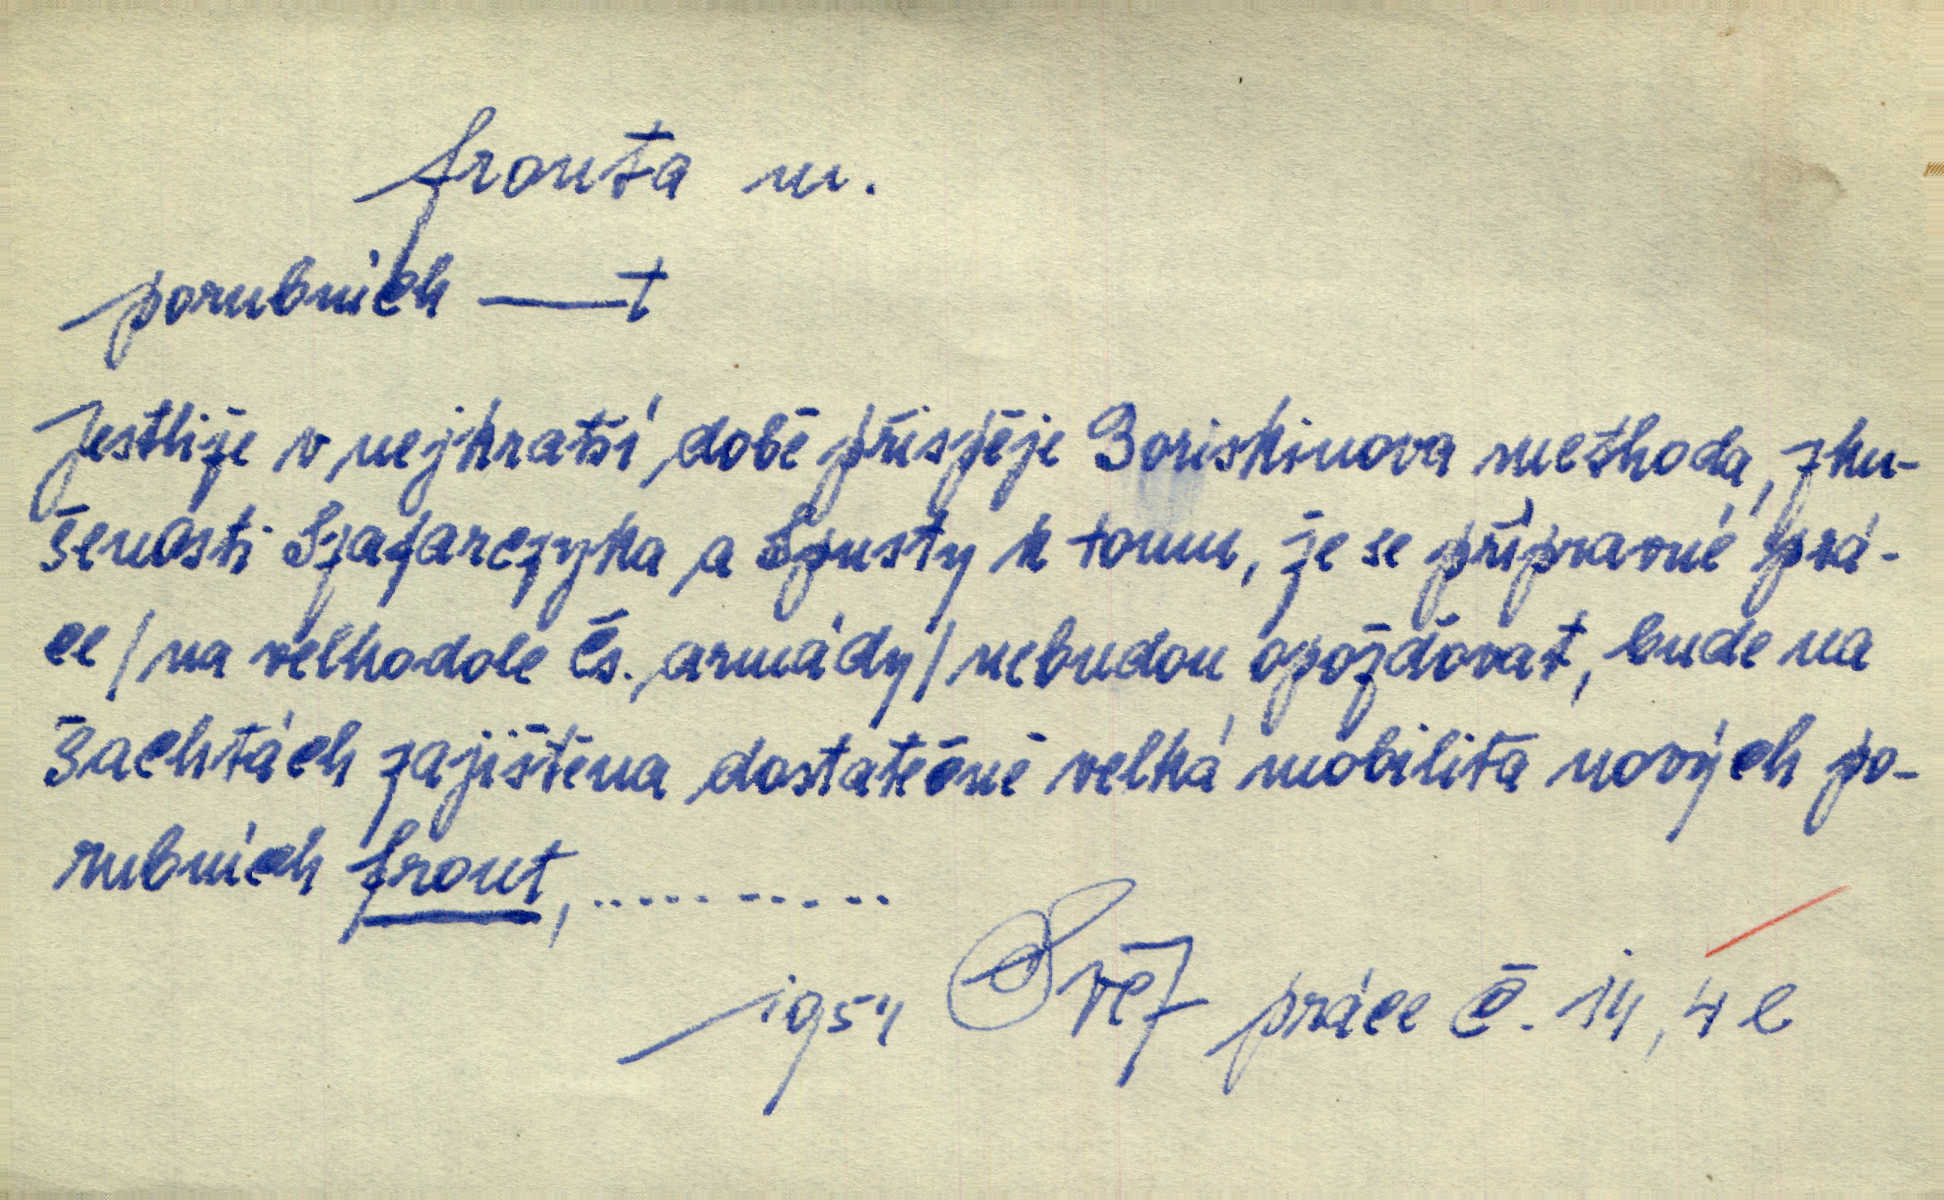 fronta m.
porubních —— t
Jestliže v nejkratší době přispěje Boriskinova methoda, zku-
šenosti Szafarczyka a Spusty k tomu, že se přípravné prá-
ce / na velkodole Čs. armády / nebudou opožďovat, bude na
šachtách zajištěna dostatečně velká mobilita nových po-
rubních front, ..........
1954 Svět práce č. 14, 4 c